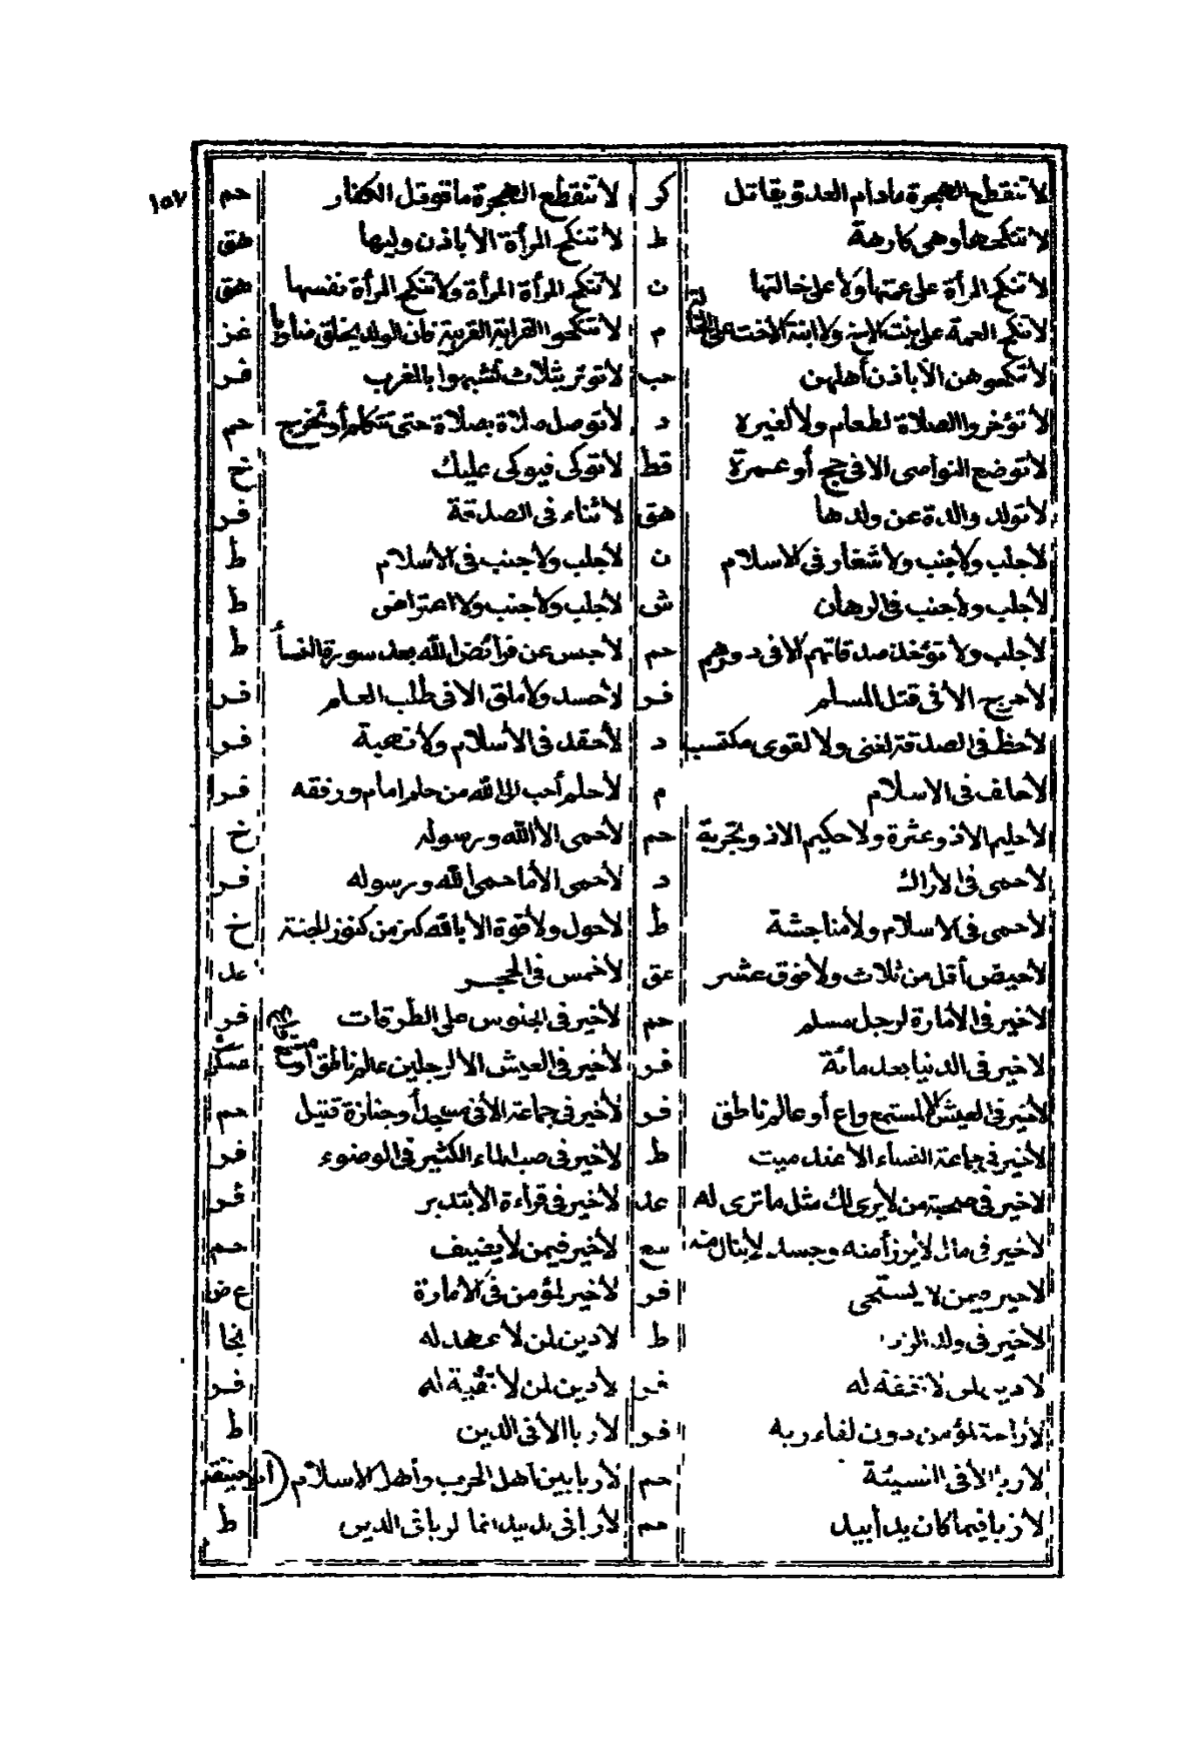 ١٥٧
لا تنقطع الهجرة مادام العدو يقاتل كر لا تنقطع الهجرة ما قوتل الكفار حم
لا تنكحها وهي كارهة ط لا تنكح المرأة الا باذن وليها هق
لا تنكح المرأة على عمتها ولا على خالتها ن لا تنكح المرأة المرأة ولا تنكح المرأة نفسها هق
لا تنكح العمة على بنت الاخ ولا ابنة الاخت على الخالة م لا تنكحوا القرابة القريبة فان الولد يخلق ضاويا غز
لا تنكحوهن الا باذن أهلهن حب لا توتر بثلاث تشبهوا بالمغرب فر
لا تؤخروا الصلاة لطعام ولا لغيره د لا توصل صلاة بصلاة حتى تتكلم أو تخرج حم
لا توضع النواصى الا فى حج أو عمرة قط لا توكى فيوكى عليك خ
لا توله والدة عن ولدها هق لا ثناء فى الصدقة فر
لا جلب ولا جنب ولا شغار فى الاسلام ن لا جلب ولا جنب فى الاسلام ط
لا جلب ولا جنب فى الرهان ش لا جلب ولا جنب ولا اعتراض ط
لا جلب ولا تؤخذ صدقاتهم الا فى دورهم حم لا حبس عن فرائض الله بعد سورة النسأ ط
لا حرج الا فى قتل المسلم فر لا حسد ولا ملق الا فى طلب العلم فر
لا حظ فى الصدقة لغنى ولا لقوى مكتسب د لا حقد فى الاسلام ولا فر
لا حلف فى الاسلام م لا حلم أحب الى الله من حلم امام ورفقه فر
لا حليم الا ذو عثرة ولا حكيم الا ذو تجربة حم لا حمى الا لله ورسوله خ
لا حمى فى الأراك د لا حمى الا ما حمى الله ورسوله فر
لا حمى فى الاسلام ولا مناجشة ط لا حول ولا قوة الا بالله كنز من كنوز الجنة خ
لا حيض أقل من ثلاث ولا فوق عشر عق لا خمس فى الحجر عد
لا خير فى الامارة لرجل مسلم حم لا خير فى الجلوس على الطرقات فر
لا خير فى الدنيا بعد مائة فر لا خير فى العيش الا لرجلين عالم ناطق أو مستمع عسكر
لا خير فى العيش الا لمستمع واع أو عالم ناطق فر لا خير فى جماعة الا فى مسجد أو جنازة قتيل حم
لا خير فى جماعة النساء الا عند ميت ط لا خير فى صب الماء الكثير فى الوضوء فر
لا خير فى صحبة من لا يرى لك مثل ما ترى له عد لا خير فى قراءة الا بتدبر فر
لا خير فى مال لا يرزأ منه وجسد لا ينال منه سع لا خير فيمن لا يضيف حم
لا خير فيمن لا يستحى فر لا خير لمؤمن فى الامارة ع ض
لا خير فى ولد الزنا ط لا دين لمن لا عهد له نجا
لا دين لمن لا له فر لا دين لمن لا تقية له فر
لا راحة لمؤمن دون لقاء ربه فر لا ربا الا فى الدين ط
لا ربا الا فى النسيئة حم لا ربا بين أهل الحرب وأهل الاسلام (أبو حنيفة
لا ربا فيما كان يدا بيد حم لا ربا فى يد بيد انما الربا فى الدين ط